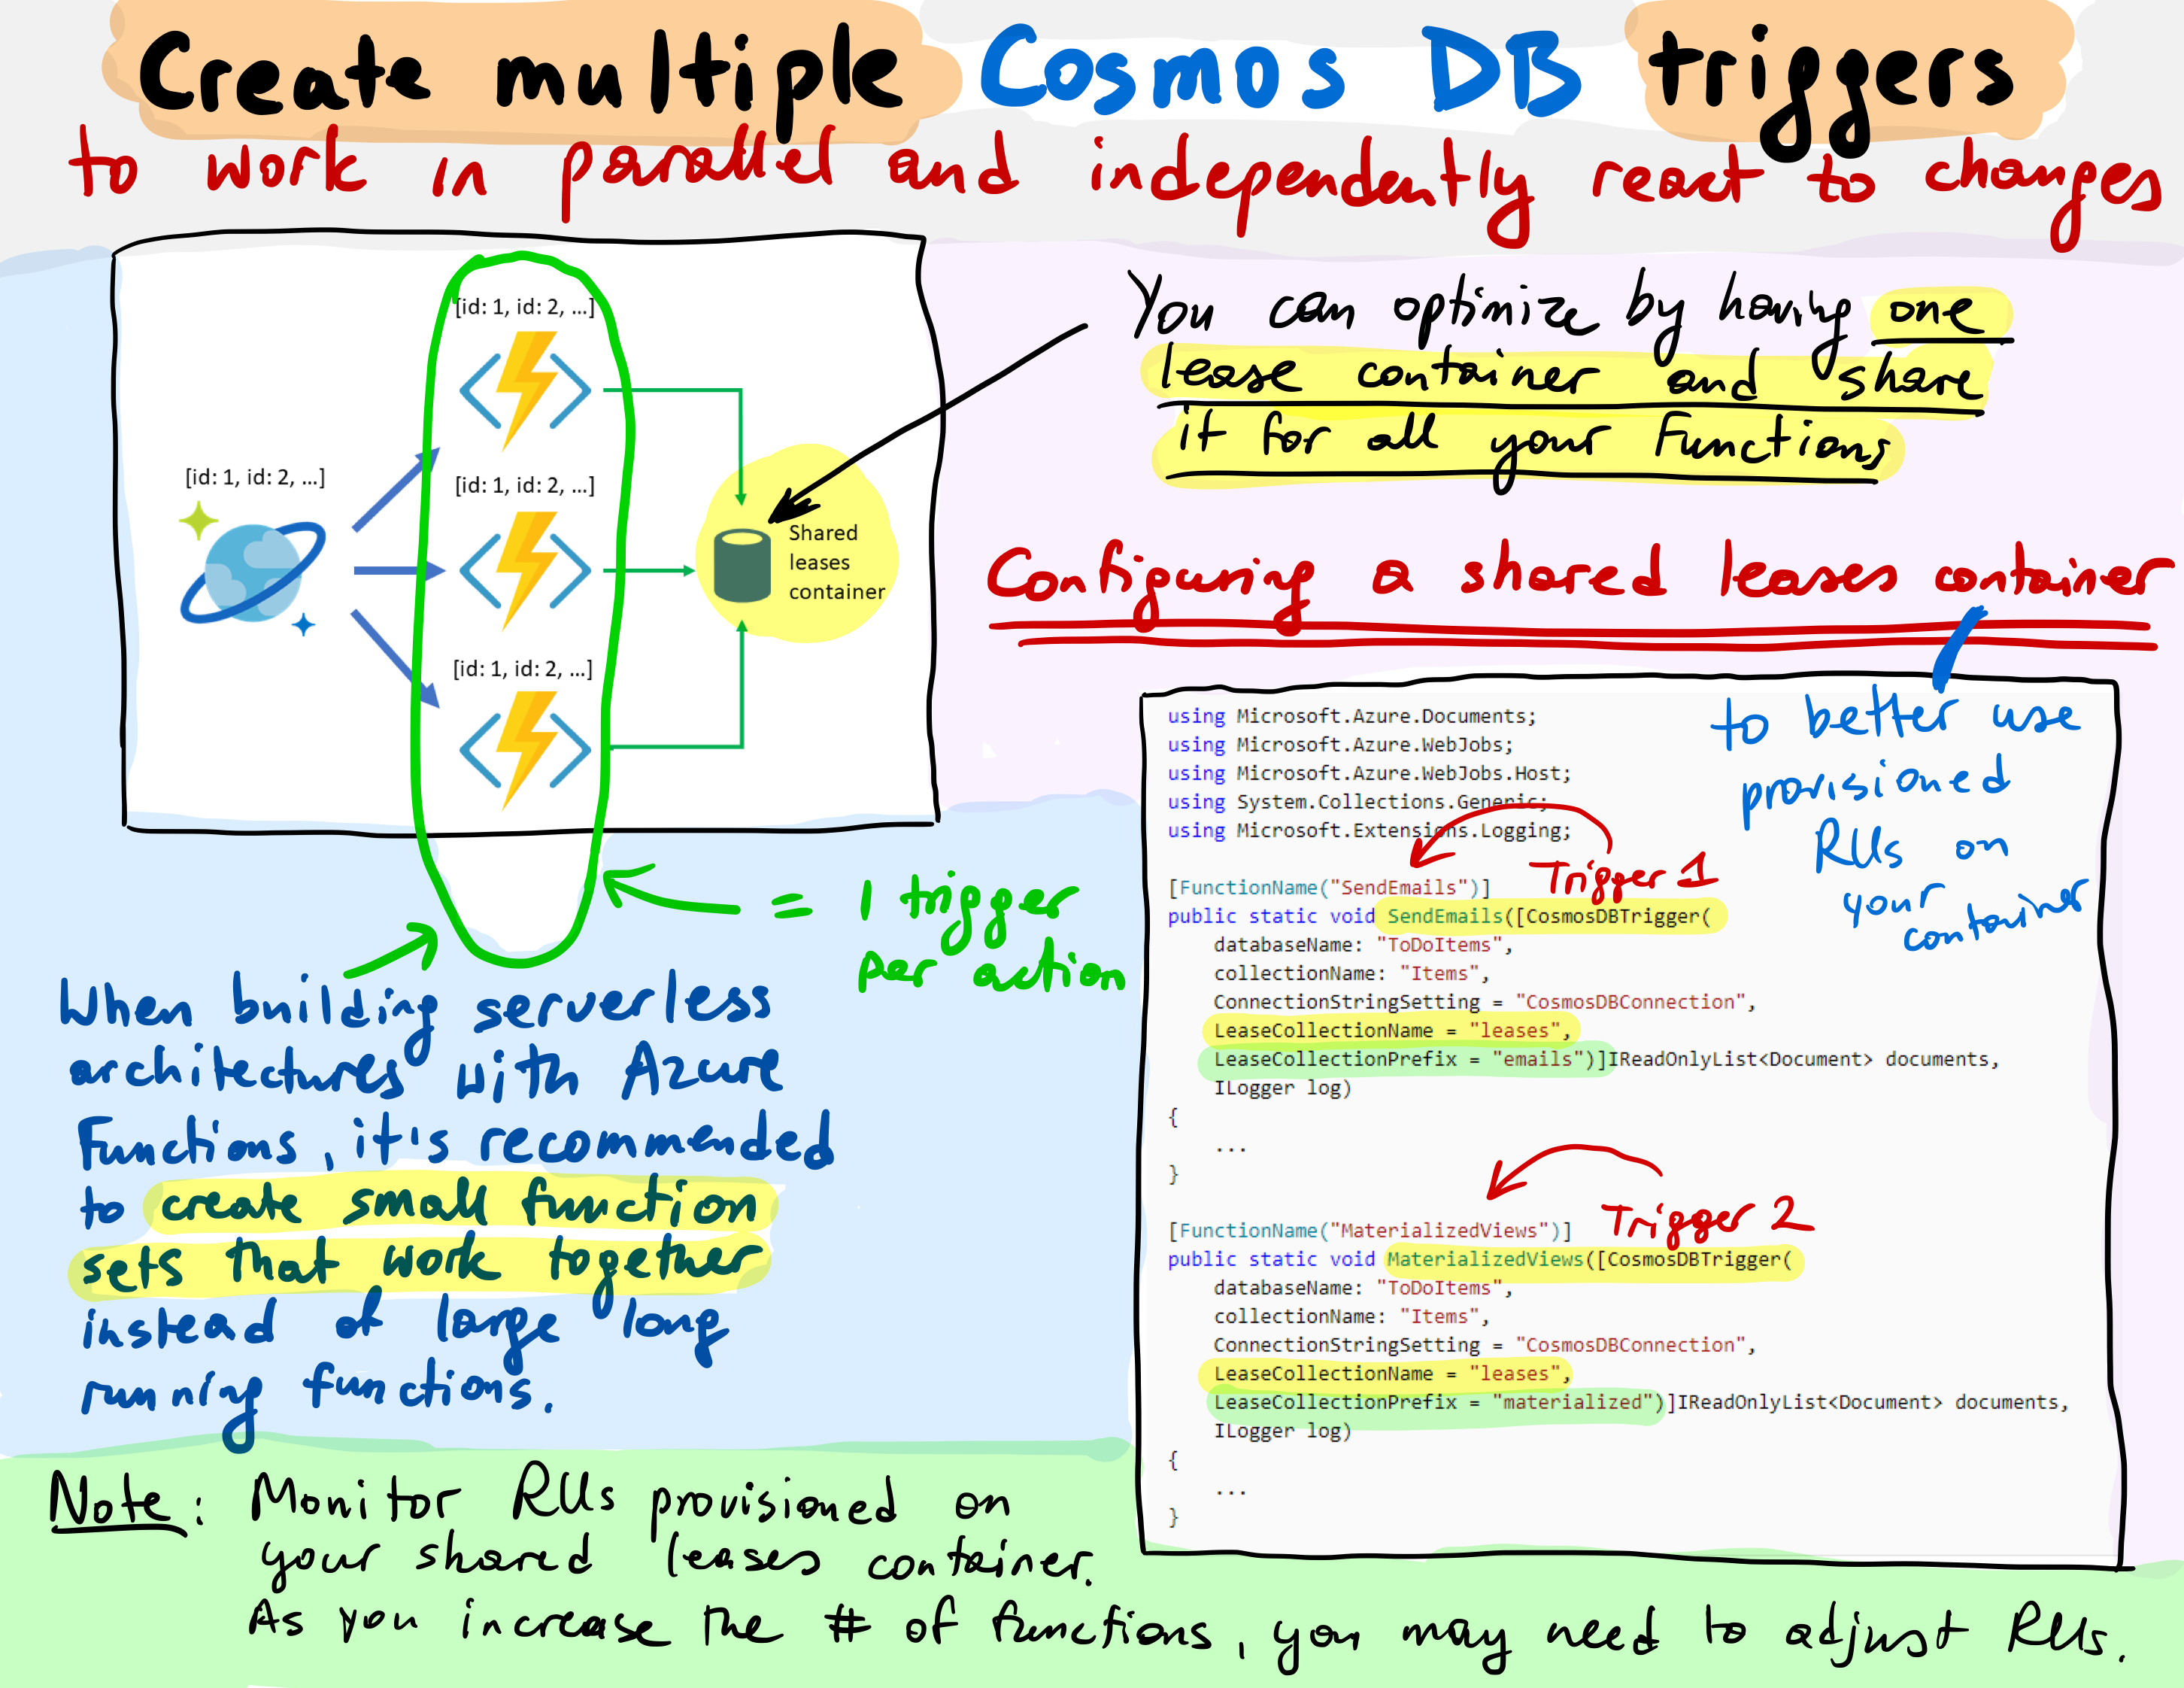 Create multiple Cosmos DB triggers
to work in parallel and independently react to changes
[id: 1, id: 2, ...]
[id: 1, id: 2, ...]
[id: 1, id: 2, ...]
[id: 1, id: 2, ...]
Shared
leases
container
= 1 trigger
per action
When building serverless
architectures with Azure
Functions, it's recommended
to create small function
sets that work together
instead of large long
running functions.
You can optimize by having one
lease container and share
it for all your Functions
Configuring a shared leases container
to better use
provisioned
RUs on
your
container
using Microsoft.Azure.Documents;
using Microsoft.Azure.WebJobs;
using Microsoft.Azure.WebJobs.Host;
using System.Collections.Generic;
using Microsoft.Extensions.Logging;
Trigger 1
[FunctionName("SendEmails")]
public static void SendEmails([CosmosDBTrigger(
    databaseName: "ToDoItems",
    collectionName: "Items",
    ConnectionStringSetting = "CosmosDBConnection",
    LeaseCollectionName = "leases",
    LeaseCollectionPrefix = "emails")]IReadOnlyList<Document> documents,
    ILogger log)
{
    ...
}
Trigger 2
[FunctionName("MaterializedViews")]
public static void MaterializedViews([CosmosDBTrigger(
    databaseName: "ToDoItems",
    collectionName: "Items",
    ConnectionStringSetting = "CosmosDBConnection",
    LeaseCollectionName = "leases",
    LeaseCollectionPrefix = "materialized")]IReadOnlyList<Document> documents,
    ILogger log)
{
    ...
}
Note: Monitor RUs provisioned on
your shared leases container.
As you increase the # of functions, you may need to adjust RUs.